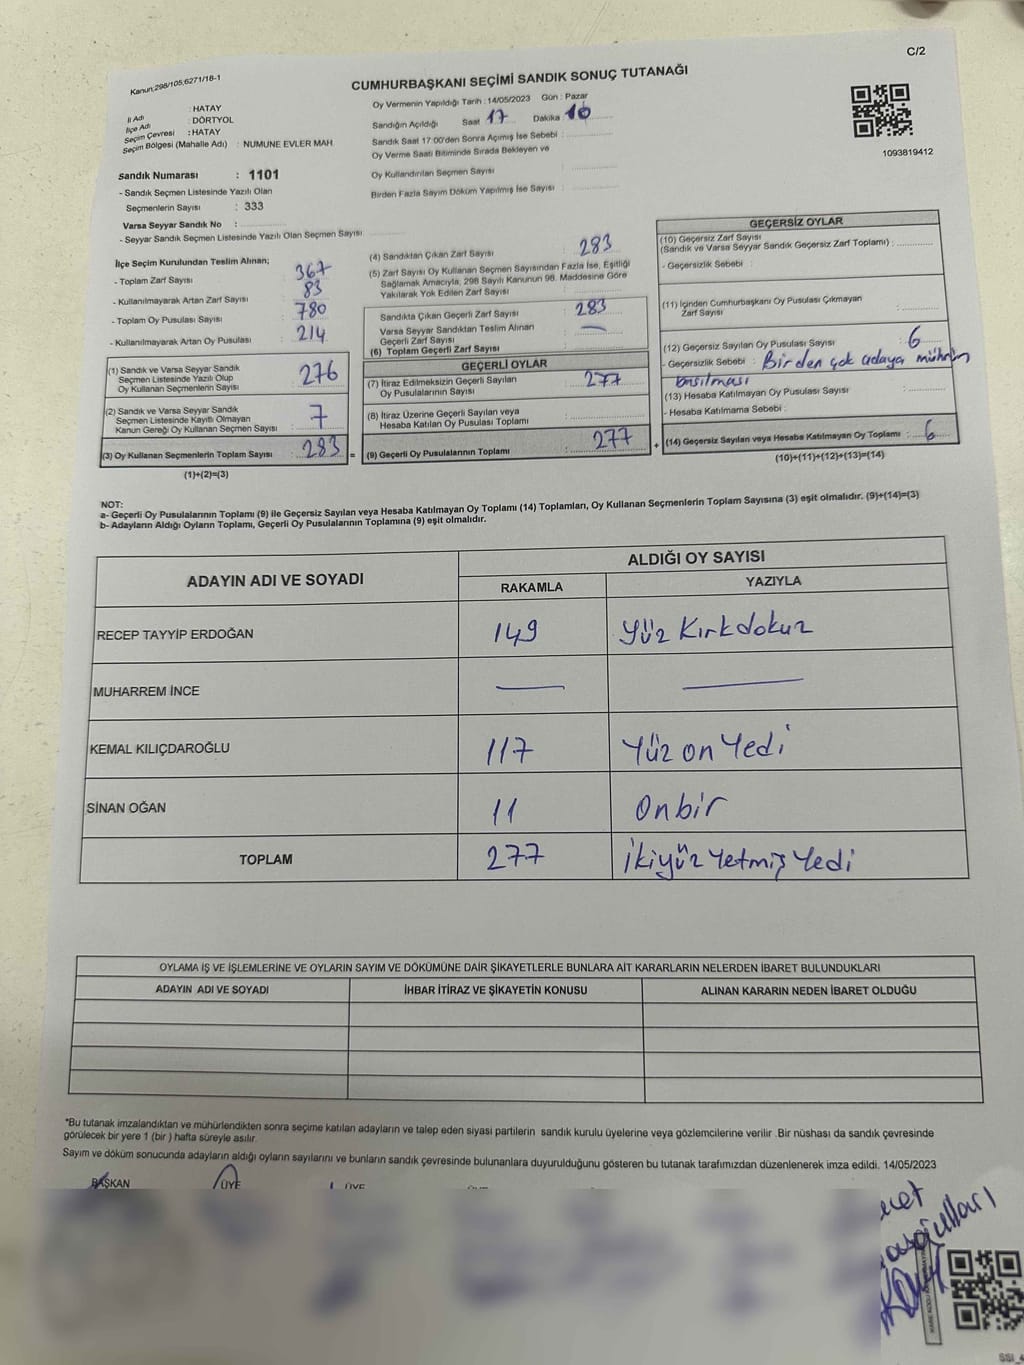 C/2
Kanun;298/105;6271/18-1
CUMHURBAŞKANI SEÇİMİ SANDIK SONUÇ TUTANAĞI
İl Adı : HATAY
İlçe Adı : DÖRTYOL
Seçim Çevresi : HATAY
Seçim Bölgesi (Mahalle Adı) : NUMUNE EVLER MAH.
Oy Vermenin Yapıldığı Tarih : 14/05/2023 Gün : Pazar
Sandığın Açıldığı Saat 17 Dakika 10
Sandık Saat 17:00'den Sonra Açımış İse Sebebi :
Oy Verme Saati Bitiminde Sırada Bekleyen ve
Oy Kullandırılan Seçmen Sayısı :
Birden Fazla Sayım Döküm Yapılmış İse Sayısı :
1093819412
Sandık Numarası : 1101
- Sandık Seçmen Listesinde Yazılı Olan
Seçmenlerin Sayısı : 333
Varsa Seyyar Sandık No :
- Seyyar Sandık Seçmen Listesinde Yazılı Olan Seçmen Sayısı
İlçe Seçim Kurulundan Teslim Alınan;
- Toplam Zarf Sayısı : 367
- Kullanılmayarak Artan Zarf Sayısı : 83
- Toplam Oy Pusulası Sayısı : 780
- Kullanılmayarak Artan Oy Pusulası : 214
(1) Sandık ve Varsa Seyyar Sandık
Seçmen Listesinde Yazılı Olup
Oy Kullanan Seçmenlerin Sayısı : 276
(2) Sandık ve Varsa Seyyar Sandık
Seçmen Listesinde Kayıtlı Olmayan
Kanun Gereği Oy Kullanan Seçmen Sayısı : 7
(3) Oy Kullanan Seçmenlerin Toplam Sayısı : 283 =
(1)+(2)=(3)
(4) Sandıktan Çıkan Zarf Sayısı : 283
(5) Zarf Sayısı Oy Kullanan Seçmen Sayısından Fazla İse, Eşitliği
Sağlamak Amacıyla, 298 Sayılı Kanunun 98. Maddesine Göre
Yakılarak Yok Edilen Zarf Sayısı :
Sandıkta Çıkan Geçerli Zarf Sayısı : 283
Varsa Seyyar Sandıktan Teslim Alınan
Geçerli Zarf Sayısı : —
(6) Toplam Geçerli Zarf Sayısı :
GEÇERLİ OYLAR
(7) İtiraz Edilmeksizin Geçerli Sayılan
Oy Pusulalarının Sayısı : 277
(8) İtiraz Üzerine Geçerli Sayılan veya
Hesaba Katılan Oy Pusulası Toplamı :
(9) Geçerli Oy Pusulalarının Toplamı : 277 +
GEÇERSİZ OYLAR
(10) Geçersiz Zarf Sayısı
(Sandık ve Varsa Seyyar Sandık Geçersiz Zarf Toplamı) :
- Geçersizlik Sebebi :
(11) İçinden Cumhurbaşkanı Oy Pusulası Çıkmayan
Zarf Sayısı :
(12) Geçersiz Sayılan Oy Pusulası Sayısı : 6
- Geçersizlik Sebebi : Birden çok adaya mührün
basılması
(13) Hesaba Katılmayan Oy Pusulası Sayısı :
- Hesaba Katılmama Sebebi :
(14) Geçersiz Sayılan veya Hesaba Katılmayan Oy Toplamı : 6
(10)+(11)+(12)+(13)=(14)
NOT:
a- Geçerli Oy Pusulalarının Toplamı (9) ile Geçersiz Sayılan veya Hesaba Katılmayan Oy Toplamı (14) Toplamları, Oy Kullanan Seçmenlerin Toplam Sayısına (3) eşit olmalıdır. (9)+(14)=(3)
b- Adayların Aldığı Oyların Toplamı, Geçerli Oy Pusulalarının Toplamına (9) eşit olmalıdır.
ADAYIN ADI VE SOYADI ALDIĞI OY SAYISI
RAKAMLA YAZIYLA
RECEP TAYYİP ERDOĞAN 149 Yüz Kırkdokuz
MUHARREM İNCE — —
KEMAL KILIÇDAROĞLU 117 Yüz on Yedi
SİNAN OĞAN 11 Onbir
TOPLAM 277 İkiyüz Yetmiş Yedi
OYLAMA İŞ VE İŞLEMLERİNE VE OYLARIN SAYIM VE DÖKÜMÜNE DAİR ŞİKAYETLERLE BUNLARA AİT KARARLARIN NELERDEN İBARET BULUNDUKLARI
ADAYIN ADI VE SOYADI İHBAR İTİRAZ VE ŞİKAYETİN KONUSU ALINAN KARARIN NEDEN İBARET OLDUĞU
*Bu tutanak imzalandıktan ve mühürlendikten sonra seçime katılan adayların ve talep eden siyasi partilerin sandık kurulu üyelerine veya gözlemcilerine verilir .Bir nüshası da sandık çevresinde
görülecek bir yere 1 (bir ) hafta süreyle asılır.
Sayım ve döküm sonucunda adayların aldığı oyların sayılarını ve bunların sandık çevresinde bulunanlara duyurulduğunu gösteren bu tutanak tarafımızdan düzenlenerek imza edildi. 14/05/2023
BAŞKAN ÜYE ÜYE